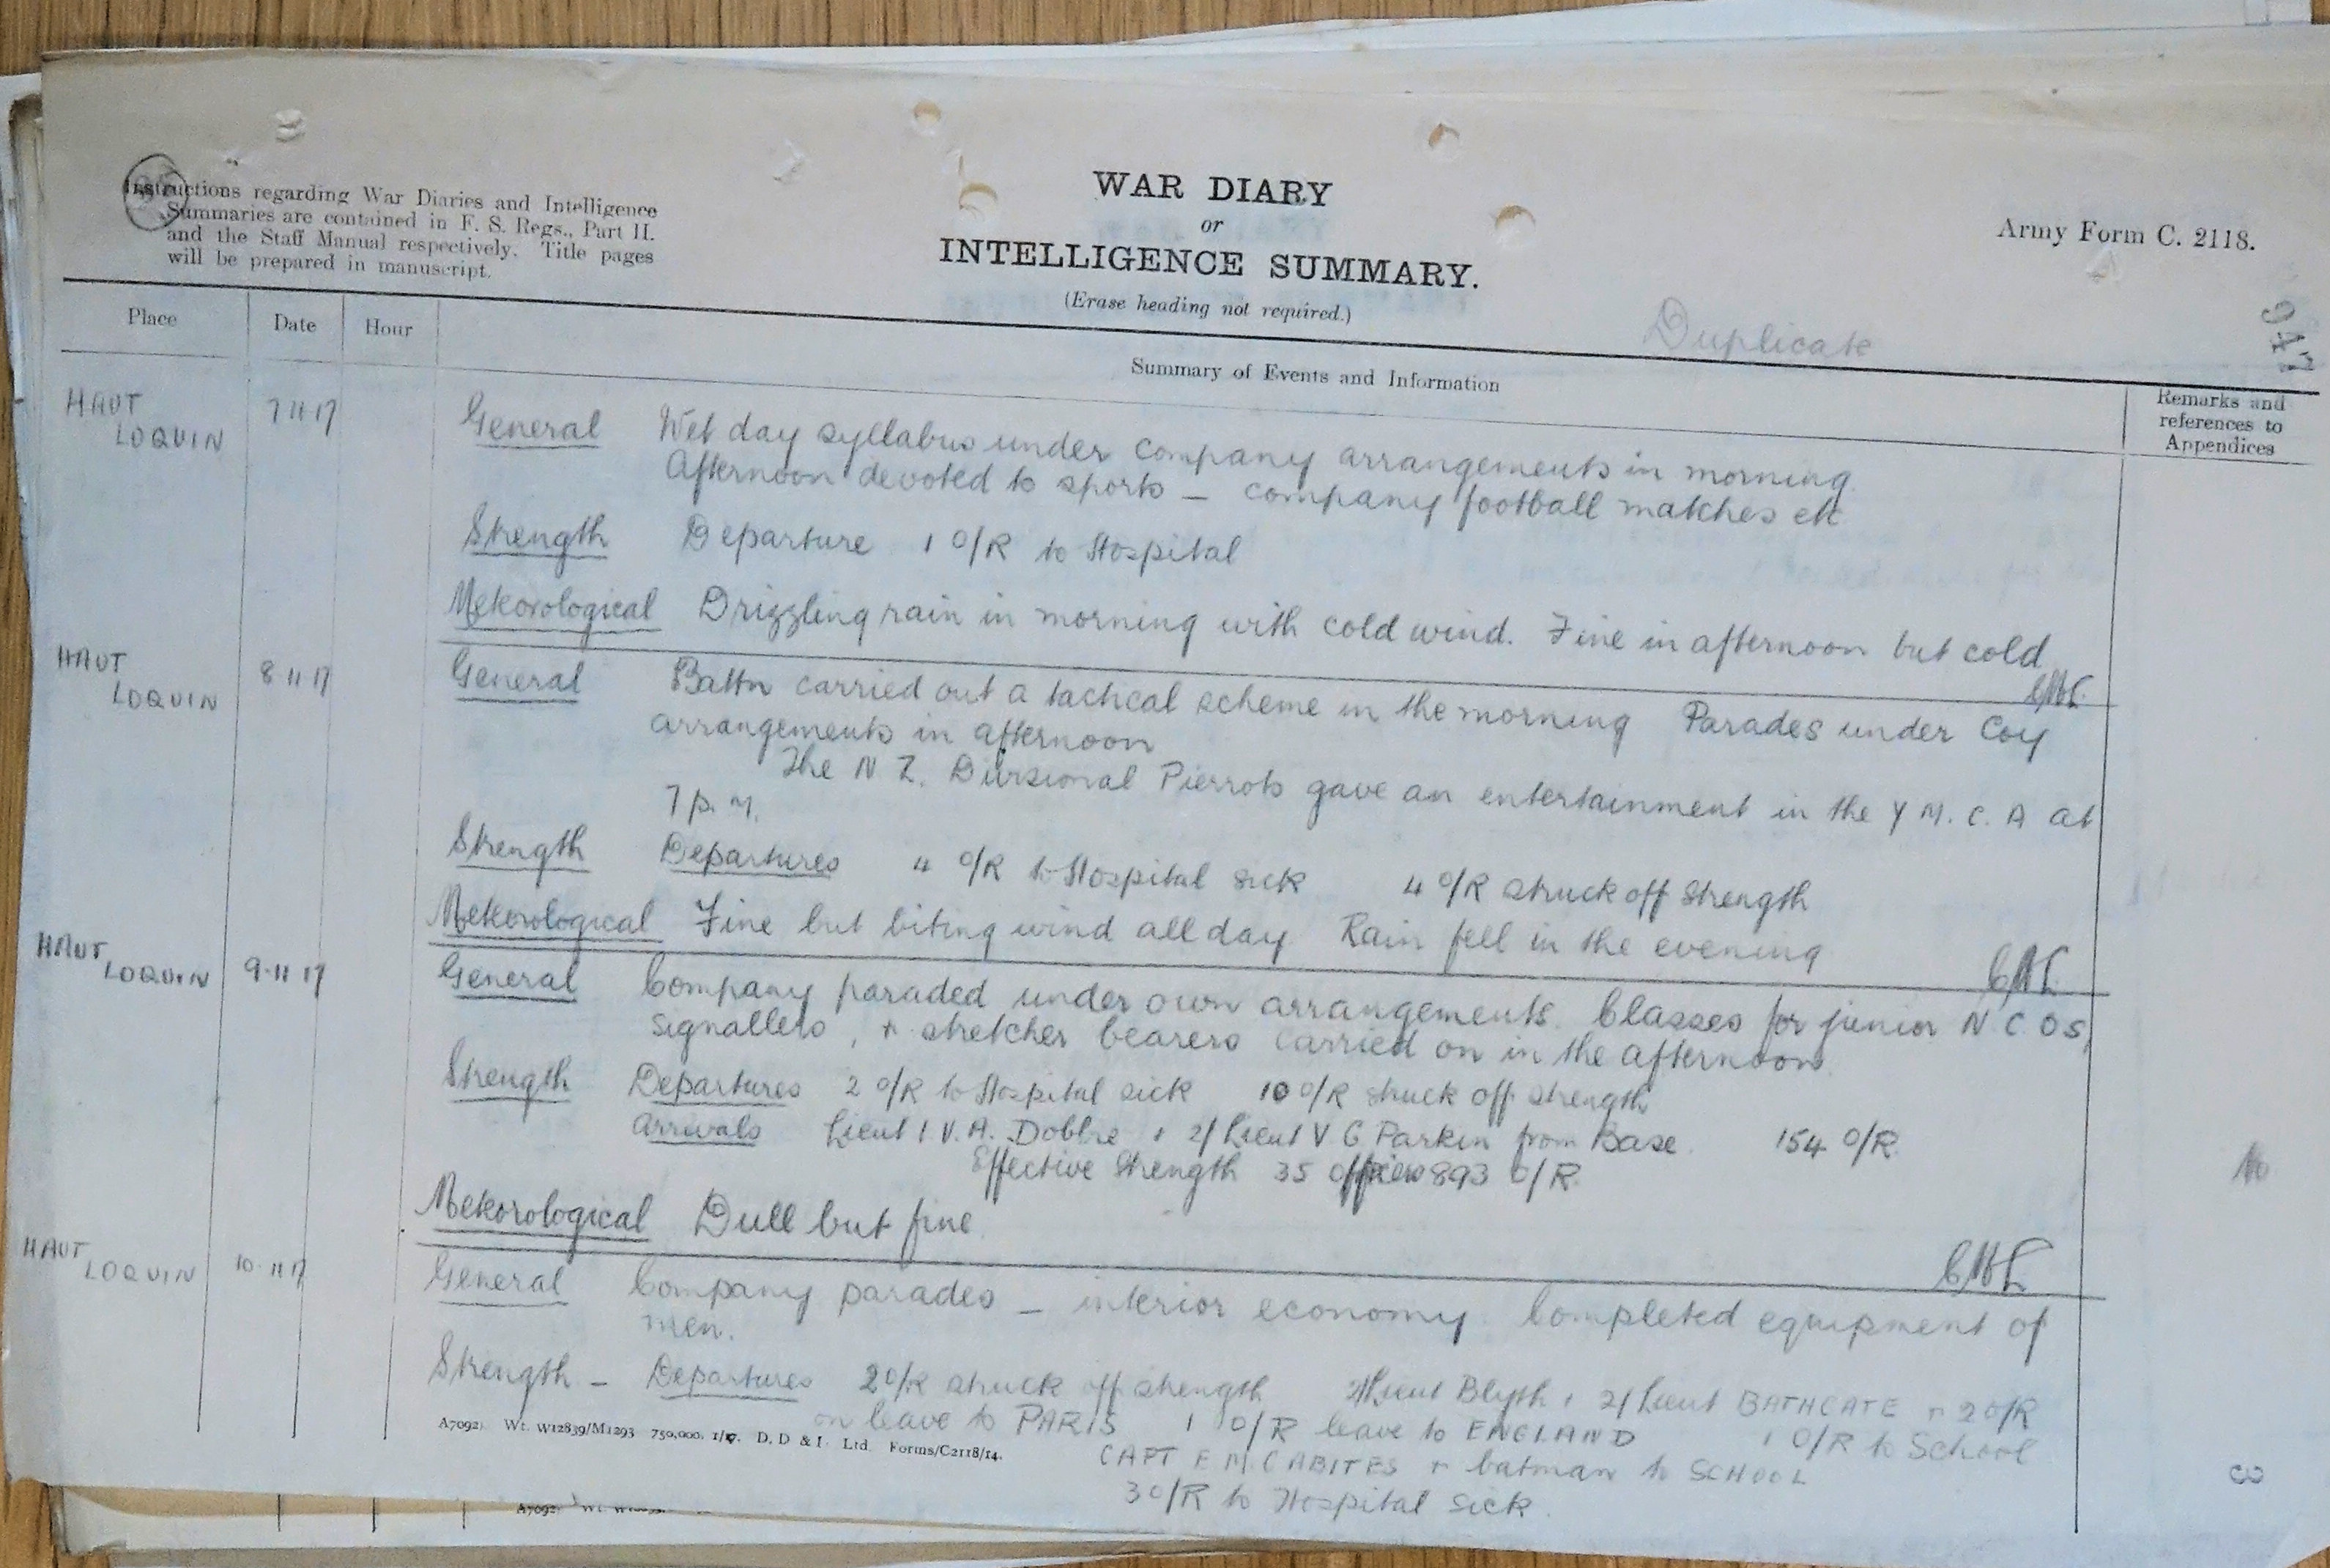 Instructions regarding War Diaries and Intelligence
Summaries are contained in F. S. Regs., Part II.
and the Staff Manual respectively. Title pages
will be prepared in manuscript.
WAR DIARY
or
INTELLIGENCE SUMMARY.
(Erase heading not required.)
Army Form C. 2118.
Duplicate
947
Place Date Hour
Summary of Events and Information
Remarks and
references to
Appendices
HAUT
LOQUIN
7 11 17
General Wet day syllabus under company arrangements in morning.
Afternoon devoted to sports – company football matches etc
Strength Departure 1 O/R to Hospital
Meteorological Drizzling rain in morning with cold wind. Fine in afternoon but cold
HAUT
LOQUIN
8 11 17
General Battn carried out a tactical scheme in the morning Parades under Coy
arrangements in afternoon
The N Z. Divisional Pierrots gave an entertainment in the Y M. C. A at
7 p. m.
Strength Departures 4 O/R to Hospital sick 4 O/R struck off strength
Meteorological Fine but biting wind all day Rain fell in the evening
HAUT
LOQUIN
9·11 17
General Company paraded under own arrangements. Classes for junior N C O s,
signallers, + stretcher bearers carried on in the afternoon.
Strength Departures 2 O/R to Hospital sick 10 O/R struck off strength
Arrivals Lieut I V. A. Dobbie + 2/Lieut V G Parkin from Base 154 O/R.
Effective Strength 35 Officers 893 O/R.
Meteorological Dull but fine
HAUT
LOQUIN
10·11 17
General Company parades – interior economy. Completed equipment of
men.
Strength – Departures 2 O/R struck off strength 2/Lieut Blyth + 2/Lieut BATHGATE + 2 O/R
on leave to PARIS 1 O/R leave to ENGLAND 1 O/R to School
CAPT E M. + batman to SCHOOL
3 O/R to Hospital sick.
A7092). Wt. W12839/M1293 750,000. 1/17. D. D & L. Ltd. Forms/C2118/14.
3
A7092.